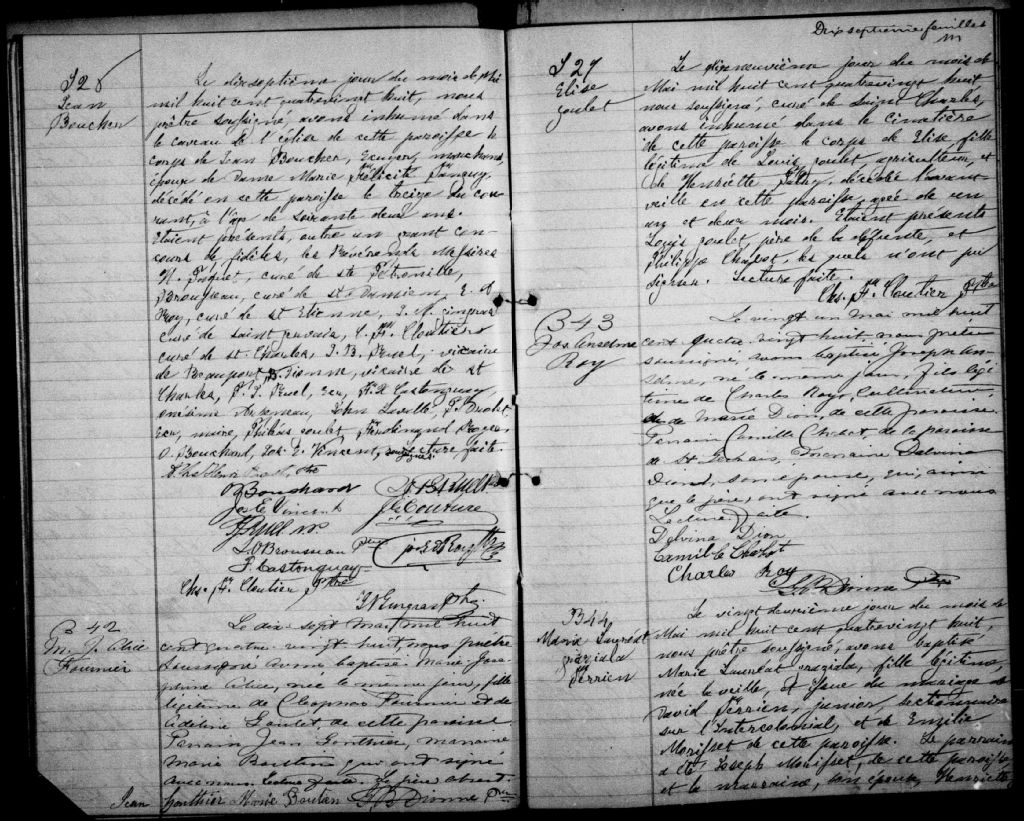 S 28
Jean
Boucher
Le dix septième jour du mois de Mai
mil huit cent quatrevingt huit, nous
prêtre soussigné avons inhumé dans
le caveau de l'église de cette paroisse le
corps de Jean Boucher, Ecuyer, marchand,
époux de Dame Marie Félicité Tanguy,
décédé en cette paroisse le treize du cou-
rant, à l'âge de soixante deux ans.
Etaient présents, outre un grand con-
cours de fidèles, les Révérends Messires
N. curé de Ste Pétronille,
Brousseau, curé de St Damien, E.
Roy, curé de St Etienne, J. N. Gingras
curé de Saint Gervais, C. Cloutier
curé de St. Charles, J. B. Ruel, vicaire
de Beaumont, Dionne, vicaire de St
Charles, Ruel, Ecr, Castonguay
John
Ecr, maire, Goulet, Ferdinand
O. Bouchard, Jos. E. Vincent, soussignés. Lecture faite.
Ptre
O Bouchard
Jos E Vincent
J G Couture
Ruel N.P.
J. O Brousseau Ptre
Jos E Roy Ptre
F. Castonguay
Chs. Fs. Cloutier Ptre
J N Gingras Ptre
B 42
M. J. Alice
Fournier
Le dix-sept Mai mil huit
cent quatre vingt huit, nous prêtre
soussigné avons baptisé Marie José-
phine Alice, née le même jour, fille
légitime de Cléophas Fournier et de
Adeline Goulet de cette paroisse
Parrain Jean Gonthier, marraine
Marie qui ont signé
avec nous. Lecture faite. Le père absent.
Jean Gonthier Marie Boutin J B Dionne Ptre
Dix septième feuillet
S 29
Elise
Goulet
Le dix neuvième jour du mois de
Mai mil huit cent quatrevingt huit
nous soussigné, curé de Saint Charles,
avons inhumé dans le cimetière
de cette paroisse le corps de Elise fille
légitime de Louis Goulet agriculteur, et
de Henriette décédée l'avant
veille en cette paroisse, agée de un
an et deux mois. Etaient présents
Louis Goulet, père de la défunte, et
Philippe Chabot, les quels n'ont pu
signer. Lecture faite.
Chs. Fs. Cloutier Ptre
B 43
Jos Anselme
Roy
Le vingt un Mai mil huit
cent quatre vingt huit nous prêtre
soussigné, avons baptisé Joseph An-
selme, né le même jour, fils légi-
time de Charles Roy, cultivateur,
et de Marie Dion, de cette paroisse.
Parrain Camille Chabot, de la paroisse
de St marraine Delvina
Dion, son épouse, qui, ainsi
que le père, ont signé avec nous
Lecture faite.
Delvina Dion
Camille Chabot
Charles Roy
J. B. Dionne Ptre
B 44
Marie Lauréat
Graziela
Perrien
Le vingt deuxième jour du mois de
Mai mil huit cent quatrevingt huit,
nous prêtre soussigné, avons baptisé
Marie Lauréat Graziela, fille légitime,
née la veille, et issue du mariage de
David Perrien, junior, sectionnaire
sur l'Intercolonial, et de Emélie
Morisset de cette paroisse. Le parrain
a été Joseph Morisset, de cette paroisse,
et la marraine, son épouse, Henriette